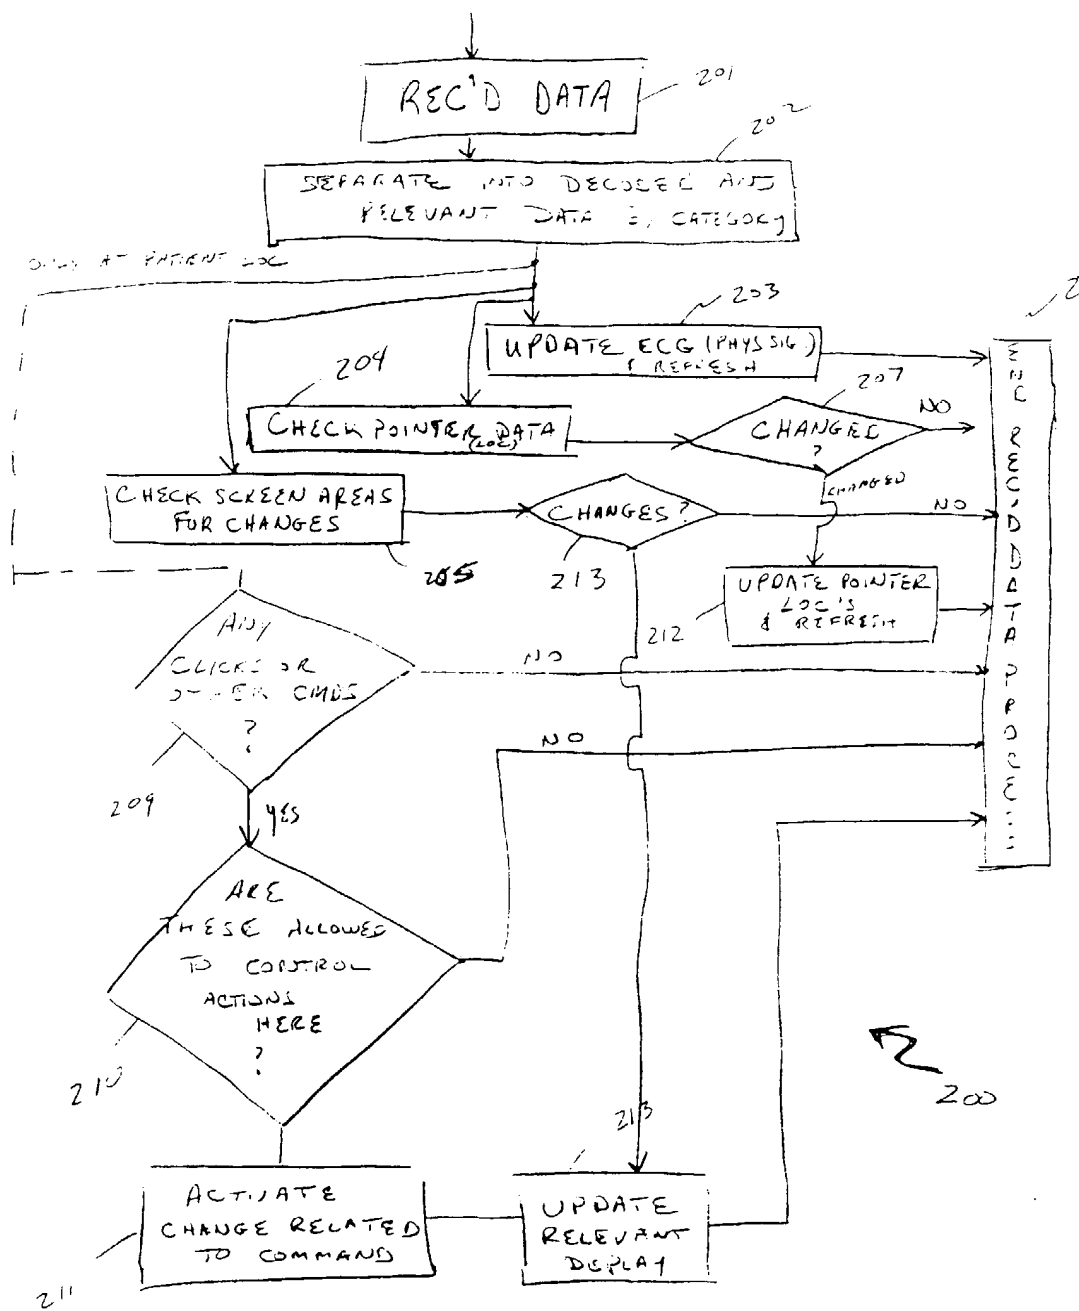 REC'D DATA
201
202
SEPARATE INTO DECODED AND
RELEVANT DATA BY CATEGORY
ONLY AT PATIENT LOC
203
2
UPDATE ECG (PHYS SIG.)
& REFRESH
204
207
CHECK POINTER DATA
(LOC)
CHANGED
?
NO
CHANGED
CHECK SCREEN AREAS
FOR CHANGES
205
CHANGES?
213
NO
UPDATE POINTER
LOC'S
& REFRESH
212
ANY
CLICKS OR
OTHER CMDS
?
NO
209
YES
NO
ARE
THESE ALLOWED
TO CONTROL
ACTIONS
HERE
?
210
200
213
ACTIVATE
CHANGE RELATED
TO COMMAND
211
UPDATE
RELEVANT
DISPLAY
REC'D DATA